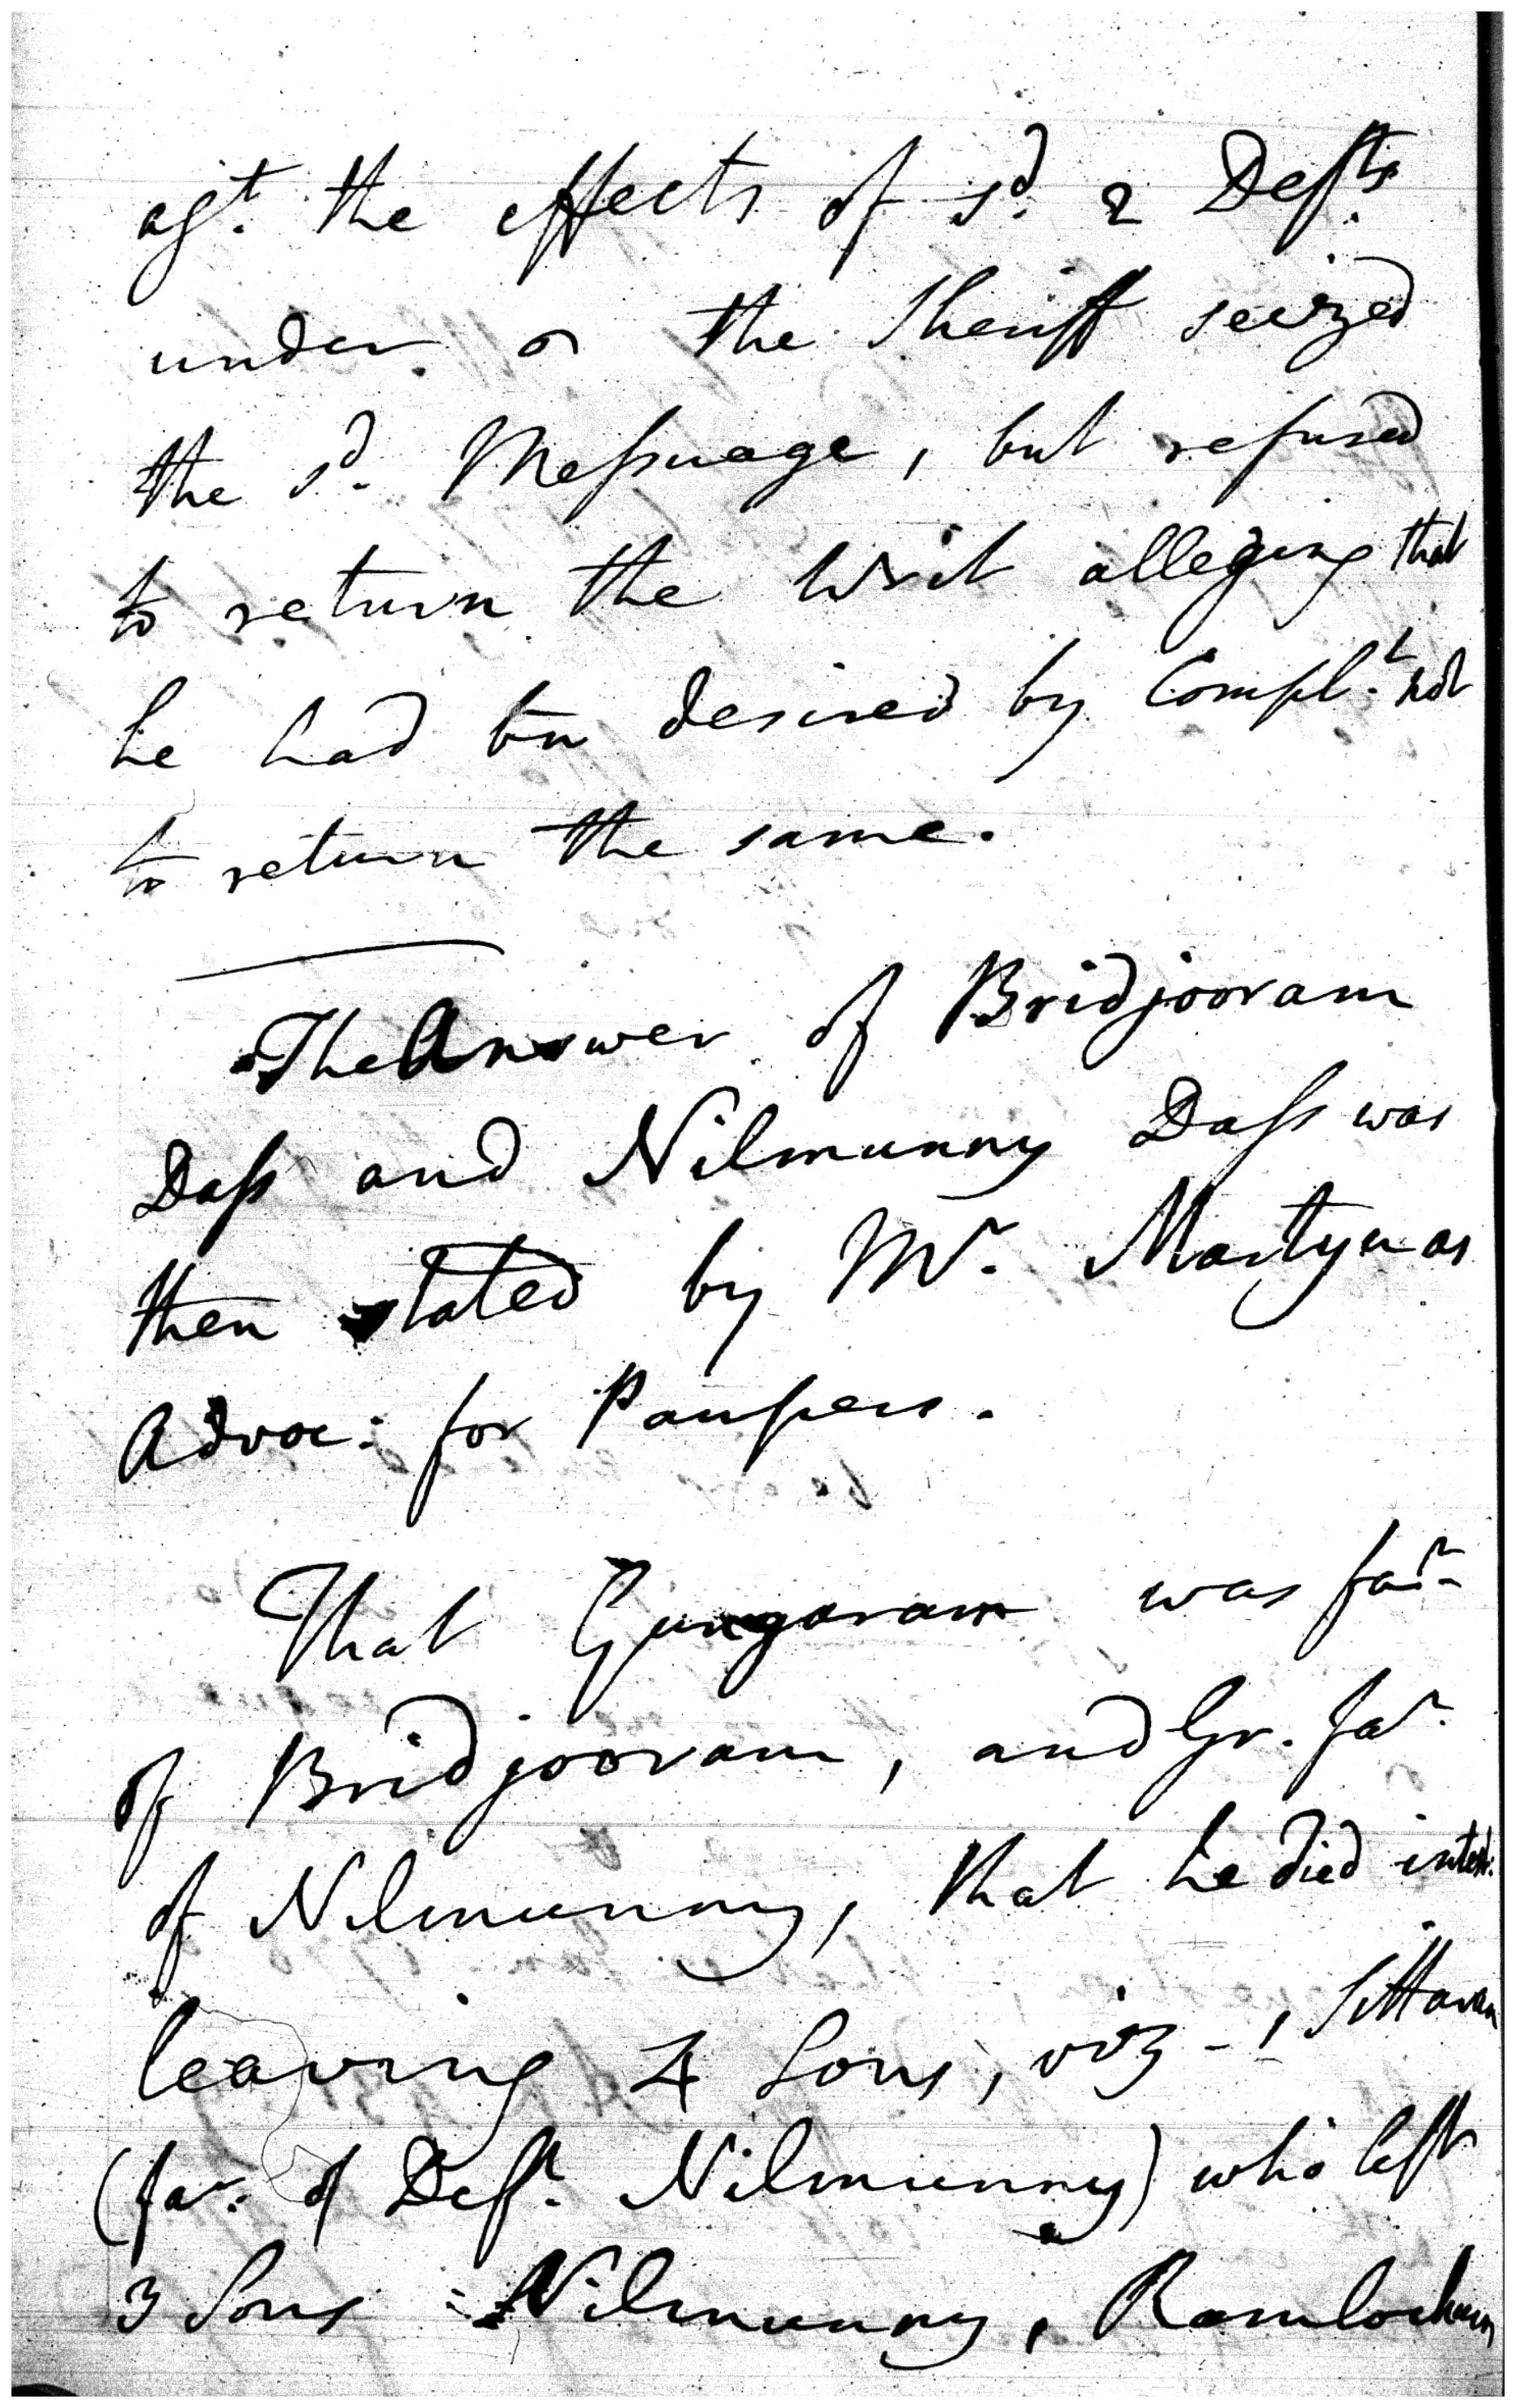 agt. the effects of sd. 2 Defts.
under the Sheriff seized
the sd. Messuage, but refused
to return the Writ alleging that
he had bn desired by Complt. not
to return the same.
The Answer of Bridjooram
Dass and Nilmunny Dass was
then stated by Mr. Martyn as
Advoc: for Paupers.
That Gungaram was far.
of Bridjooram, and Gr. far.
of Nilmunny, that he died intest:
leaving 4 Sons, viz -, Sittaram
(far. of Deft. Nilmunny) who left
3 Sons Nilmunny, Ramlochun